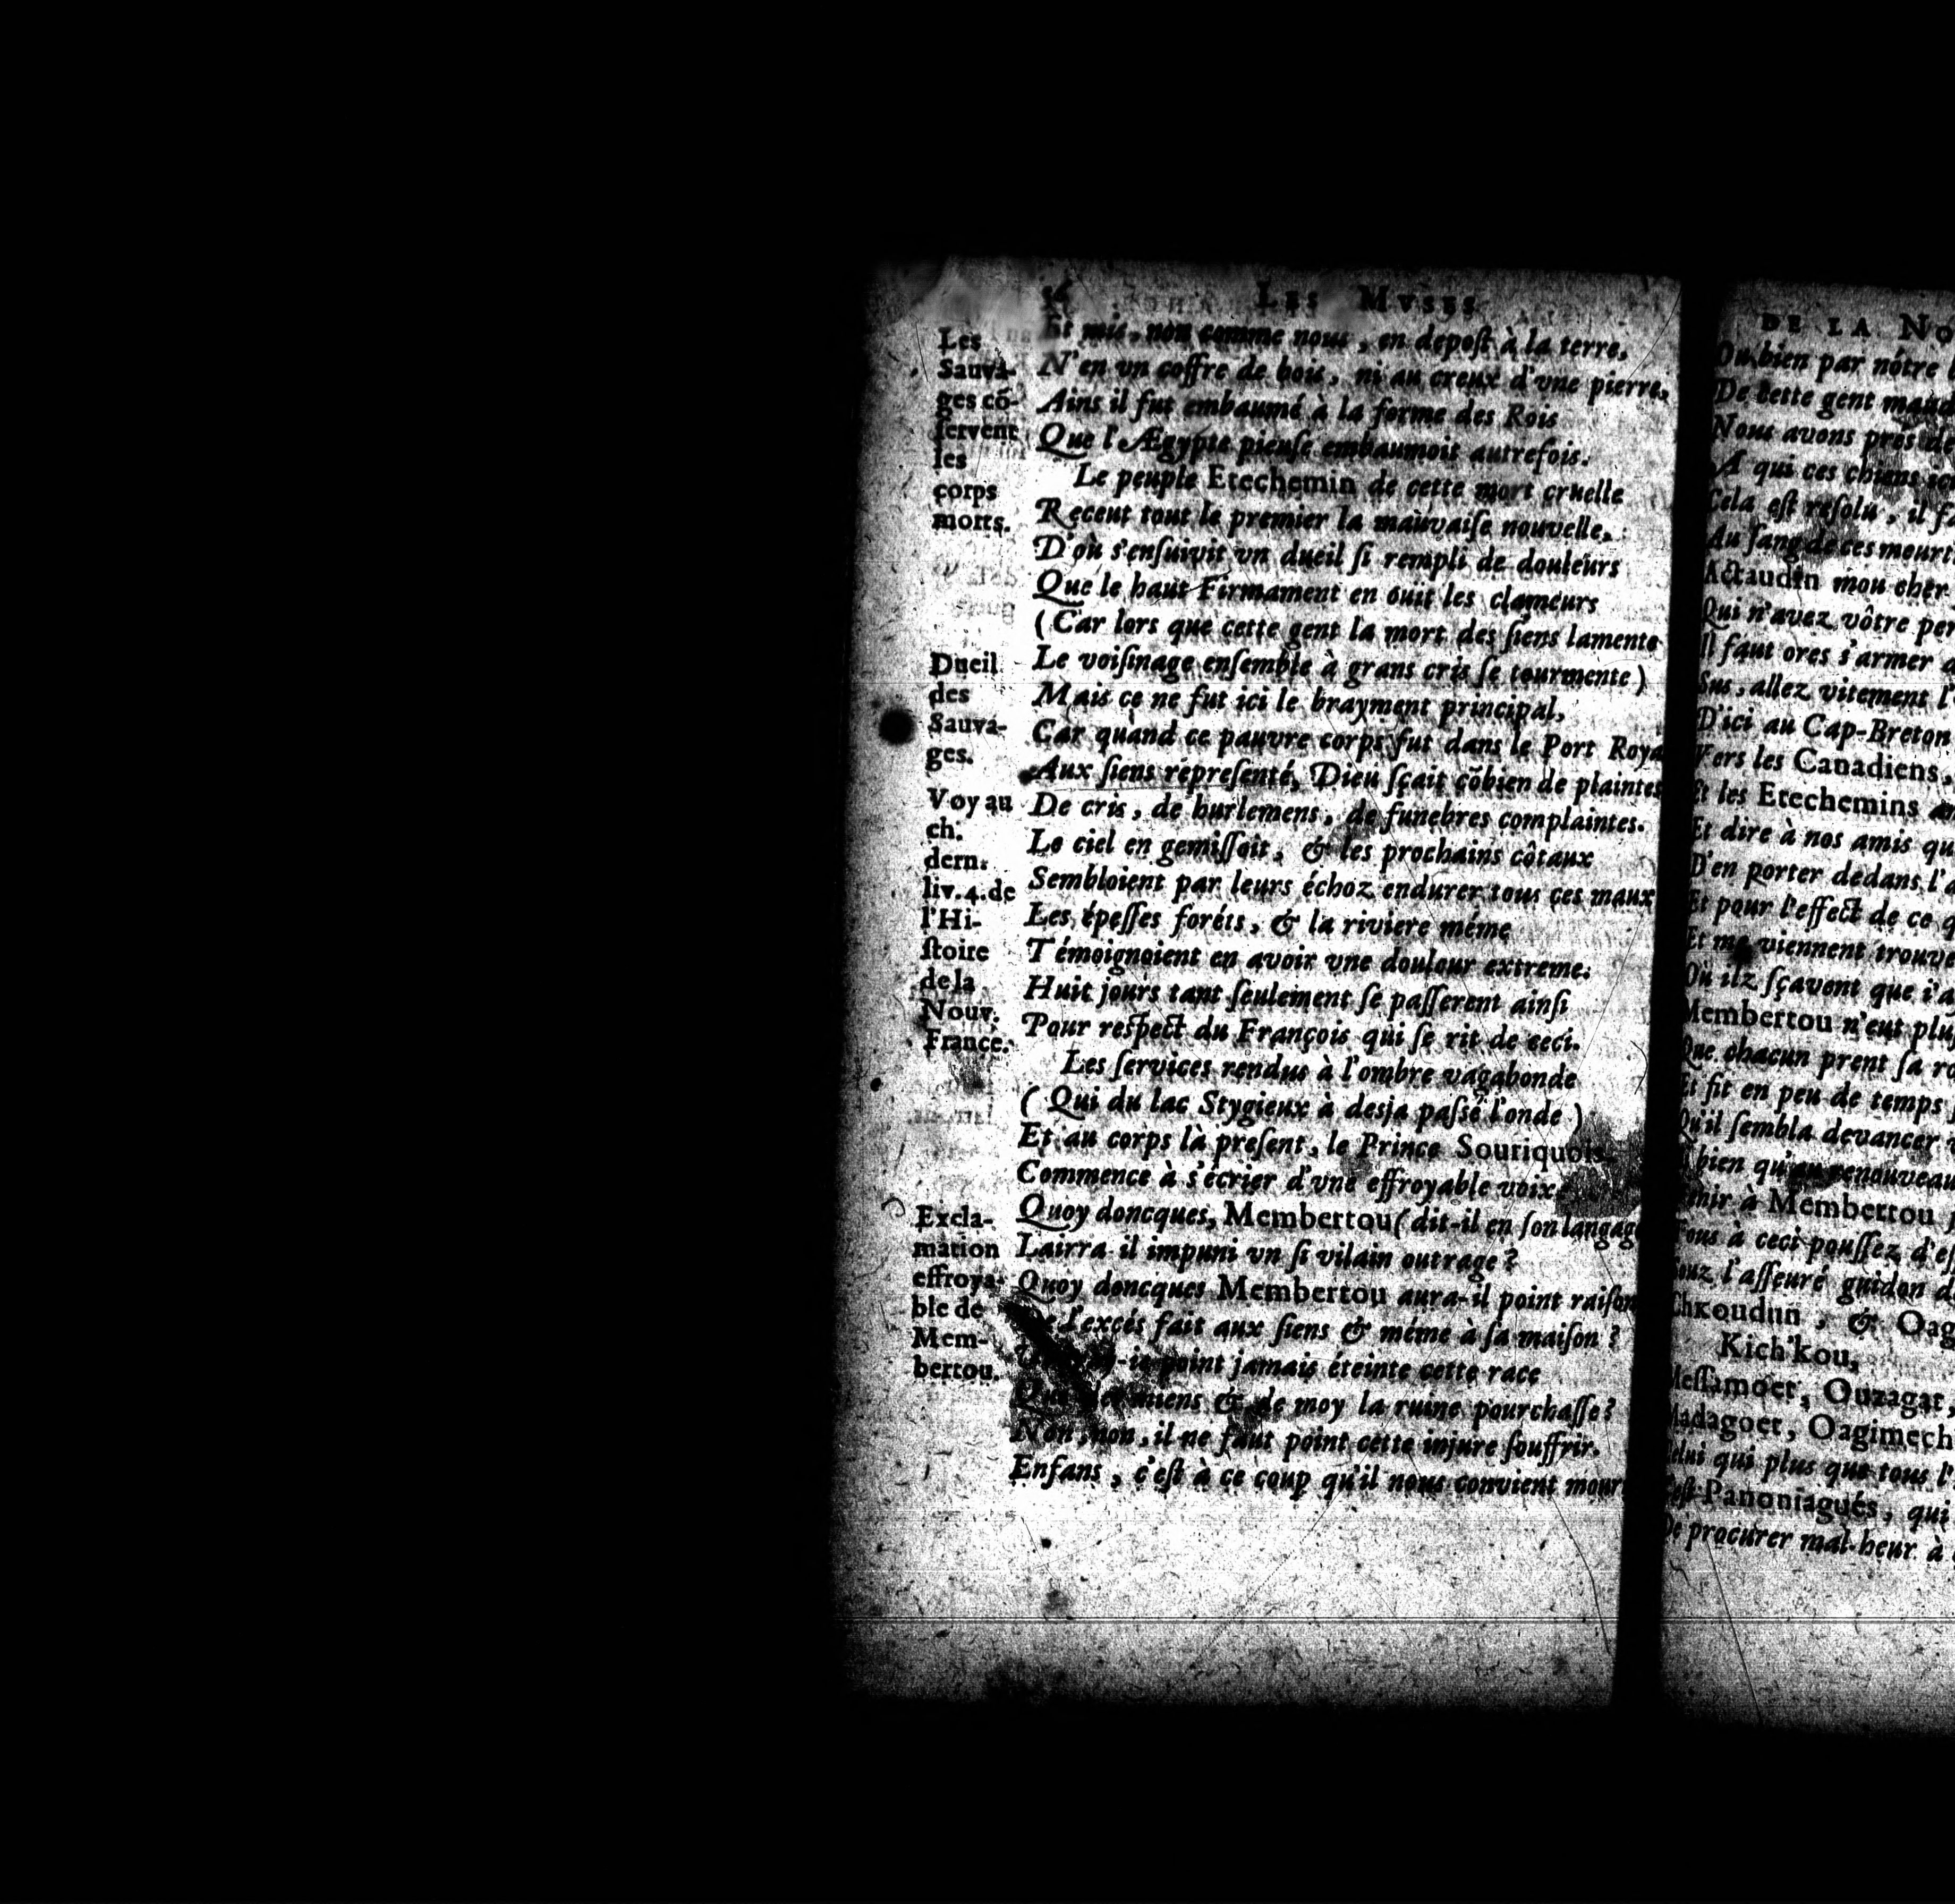 56 LES MVSES
Et mis, non comme nous, en depoſt à la terre,
N'en vn coffre de bois, ni au creux d'vne pierre,
Ains il fut embaumé à la forme des Rois
Que l'Ægypte pieuſe embaumoit autrefois.
Le peuple Etechemin de cette mort cruelle
Receut tout le premier la mauvaiſe nouvelle,
D'où s'enſuivit vn dueil ſi rempli de douleurs
Que le haut Firmament en ouit les clameurs
(Car lors que cette gent la mort des ſiens lamente
Le voiſinage enſemble à grans cris ſe tourmente)
Mais ce ne fut ici le brayment principal,
Car quand ce pauvre corps fut dans le Port Roya
Aux ſiens repreſenté, Dieu ſçait cõbien de plaintes
De cris, de hurlemens, de funebres complaintes.
Le ciel en gemiſſoit, & les prochains côtaux
Sembloient par leurs échoz endurer tous ces maux
Les épeſſes foréts, & la riviere méme
Témoignoient en avoir vne douleur extreme.
Huit jours tant ſeulement ſe paſſerent ainſi
Pour reſpect du François qui ſe rit de ceci.
Les ſervices rendus à l'ombre vagabonde
(Qui du lac Stygieux à desja paſsé l'onde)
Et au corps là preſent, le Prince Souriquois
Commence à s'écrier d'vne effroyable voix,
Quoy doncques, Membertou (dit-il en ſon langage
Lairra-il impuni vn ſi vilain outrage?
Quoy doncques Membertou aura-il point raiſon
L'excés fait aux ſiens & méme à ſa maiſon?
point jamais éteinte cette race
miens & de moy la ruine pourchaſſe?
Non, non, il ne faut point cette injure ſouffrir.
Enfans, c'eſt à ce coup qu'il nous convient mour
Les
Sauva-
ges cõ-
ſervent
les
corps
morts.
Dueil
des
Sauva-
ges.
Voy au
ch.
dern.
liv.4.de
l'Hi-
ſtoire
de la
Nouv.
France.
Excla-
mation
effroya-
ble de
Mem-
bertou.
DE LA NO
Ou bien par nótre
De cette gent
Nous avons pres de
A qui ces chiens
Cela eſt reſolu, il
Au ſang de ces
Actaudin mon cher
Qui n'avez vôtre
Il faut ores s'armer
Sus, allez vitement
D'ici au Cap-Breton
Vers les Canadiens,
Et les Etechemins
Et dire à nos amis
D'en porter dedans
Et pour l'effect de ce
Et me viennent
Où ilz ſçavent que
Membertou n'eut
Que chacun prent ſa
Et fit en peu de temps
Qu'il ſembla devancer
bien renouveau
à Membertou
Tous à ceci pouſſez
l'aſſeuré guidon
Chkoudun, &
Kich'kou,
Meſſamoet, Ouzagat,
Madagoet, Oagimech
qui plus que tous
Panoniagués, qui
De procurer mal-heur à